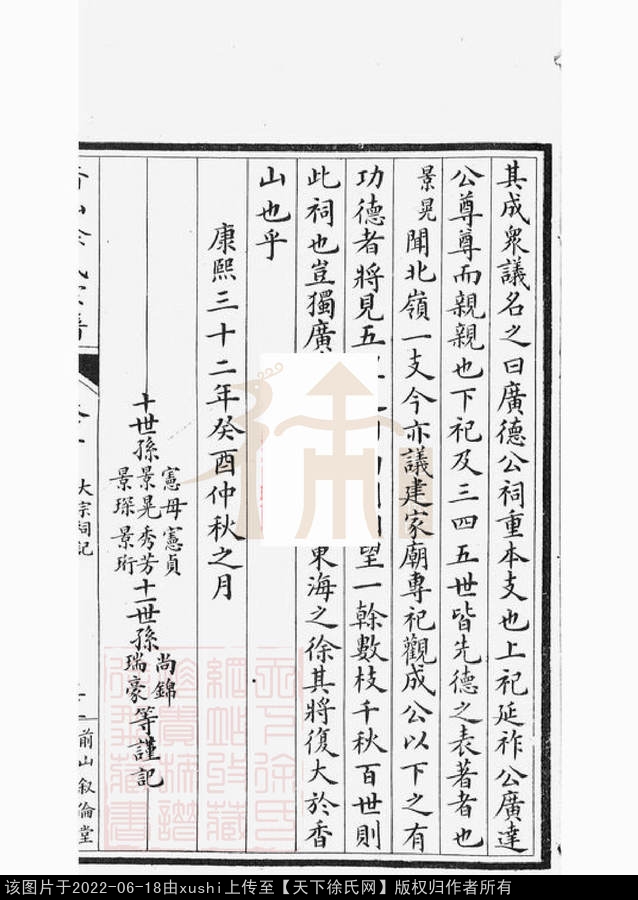 其成衆議名之曰廣德公祠重本支也上祀延祚公廣達
公尊尊而親親也下祀及三四五世皆先德之表著者也
景晃聞北嶺一支今亦議建家廟專祀觀成公以下之有
功德者將見五望一榦數枝千秋百世則
此祠也豈獨廣東海之徐其將復大於香
山也乎
康熙三十二年癸酉仲秋之月
十世孫
憲毋憲貞
景晃秀芳
景琛景珩
十一世孫
尚錦
瑞豪
等謹記
大宗祠記
前山敘倫堂
该图片于2022-06-18由xushi上传至【天下徐氏网】版权归作者所有